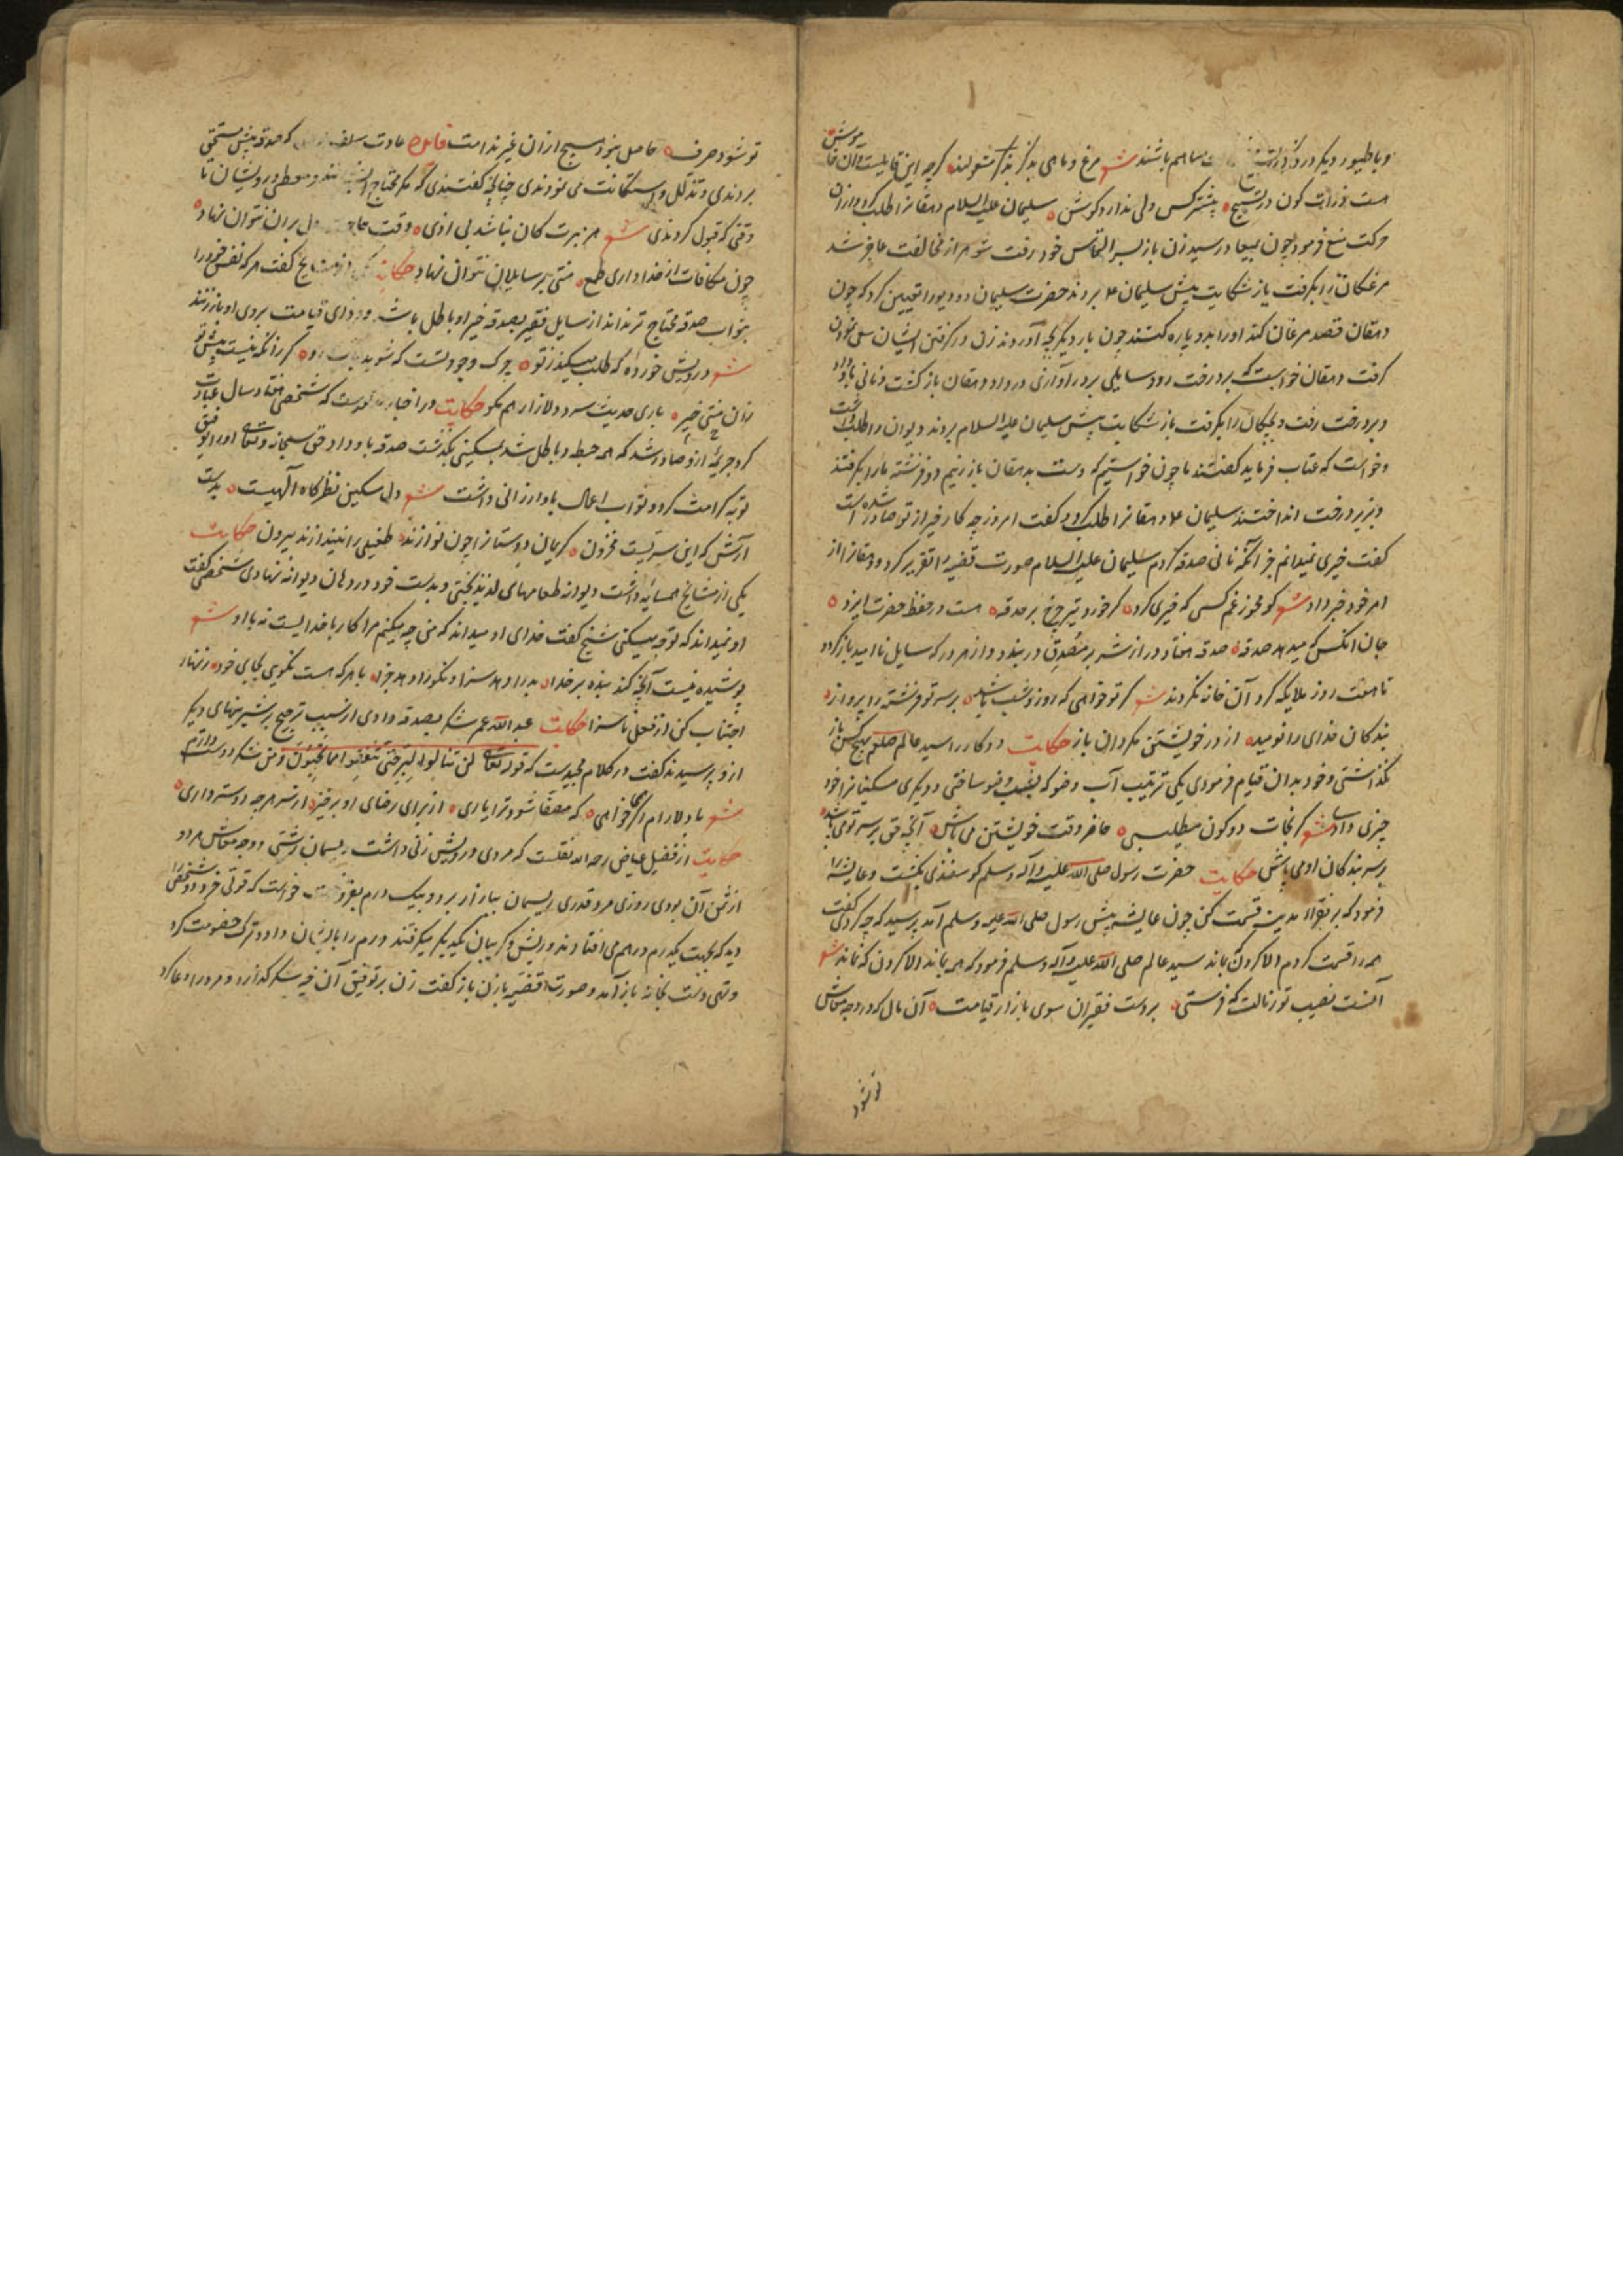 و با طیور دیگر در ذکر باشند شعر مرغ و ماهی بذکر مشغولند گرچه این قابلیت آن خاموش
هست ذرات کون در تسبیح بیشتر کس ولی ندارد گوش سلیمان علیه السلام دهقانرا طلب کرد و از آن
حرکت منع فرمود چون میعاد رسید زن باز بسر التماس خود رفت شوهر از مخالفت عاجز شد
مرغکان را بگرفت باز شکایت پیش سلیمان ع بردند حضرت سلیمان دو دیو را تعیین کرد که چون
دهقان قصد مرغان کند او را بدو پاره کنند چون بار دیگر بچه آوردند زن در گرفتن ایشان
گرفت دهقان خواست که بر درخت رود سایلی بر در آواز داد دهقان باز گشت و نانی باو داد
و بر درخت رفت و بچگان را بگرفت باز شکایت پیش سلیمان علیه السلام بردند دیوان را طلب داشت
و خواست که عتاب فرماید گفتند ما چون خواستیم که دست بدهقان باز زنیم دو فرشته ما را بگرفتند
و بزیر درخت انداختند سلیمان ع دهقانرا طلب کرد و گفت امروز چه کار خیر از تو صادر شده است
گفت خیری نمیدانم جز آنکه نانی صدقه کردم سلیمان علیه السلام صورت قضیه را تقریر کرد و دهقانرا از
امر خود خبر داد شعر گو مخور غم کسی که خیری کرد گر خورد تیر چرخ بر حدقه هست در حفظ حضرت ایزد
جان آنکس که میدهد صدقه صدقه هفتاد در از شر بر متصدق در بندد و از هر در که سایل ناامید باز گردد
تا هفت روز ملایکه گرد آن خانه نگردند شعر گر تو خواهی که روز و شب باشد بر سر تو فرشته را پرواز
بندگان خدای را نومید از در خویشتن مگردان باز حکایت دو کار را سید عالم صلعم بهیچ کس باز
نگذاشتی و خود بدان قیام فرمودی یکی ترتیب آب وضو که بشب وضو ساختی و دیگری مسکینانرا خود
چیزی دادی شعر گر نجات دو کون میطلبی حاضر وقت خویشتن می باش آنچه حق بر سر تو می باشد
بر سر بندگان او می باش حکایت حضرت رسول صلی الله علیه و آله وسلم گوسفندی بکشت و عایشه را
فرمود که بر فقراء مدینه قسمت کن چون عایشه پیش رسول صلی الله علیه وسلم آمد پرسید که چه کردی گفت
همه را قسمت کردم الا گردن بماند سید عالم صلی الله علیه وآله وسلم فرمود که همه بماند الا گردن که نماند شعر
آنست نصیب تو ز مالت که فرستی بر دست فقیران سوی بازار قیامت آن مال که در وجه معاش
تو شود
تو شود صرف حاصل نبود هیچ از آن غیر ندامت فایده عادت سلف که صدقه پیش مستحق
بردندی و تذلل و استکانت می نمودندی چنانچه گفتندی که مگر محتاج و معطی درویشان تا
وقتی که قبول کردندی شعر هر مبرت کان نباشد بی اذی وقت حاجت دل بر آن نتوان نهاد
چون مکافات از خدا داری طمع منتی بر سایلان نتوان نهاد حکایت یکی از مشایخ گفت هر که نفس خود را
بثواب صدقه محتاج تر نداند از سایل فقیر بصدقه خیر او باطل باشد و فردای قیامت بروی او باز زنند
شعر درویش خورده که طلب میکند ز تو چرک وجود تست که شوید گر زانکه نیست پیش تو
زان منتی خبر باری حدیث سرد و دلازار هم مگو حکایت در اخبار آمده است که شخصی هفتاد سال عبادت
کرد جریمه ازو صادر شد که همه حبطه و باطل شد بمسکینی بگذشت صدقه باو داد حق سبحانه و تعالی او را توفیق
توبه کرامت کرد و ثواب اعمال باو ارزانی داشت شعر دل مسکین نظرگاه الهیست بدست
آرش که این سریست مخزون کریمان دوستانرا چون نوازند طفیلی را نیندازند بیرون حکایت
یکی از مشایخ همسایه داشت دیوانه طعامهای لذیذ پختی و بدست خود در دهان دیوانه نهادی شخصی گفت
او نمیداند که تو چه میکنی شیخ گفت خدای او میداند که من چه میکنم مرا کار با خدایست نه با او شعر
پوشیده نیست آنچه کند بنده بر خدا بد را دهد سزا و نکو را دهد جزا با هر که هست نکویی بجای خود زنهار
اجتناب کن از فعل ناسزا حکایت عبد الله عمر شکر بصدقه دادی از سبب ترجیح بر شیرینهای دیگر
ازو پرسیدند گفت در کلام مجیدست که قوله تعالی لن تنالوا البر حتی تنفقوا مما تحبون و من شکر دوست دارم
شعر با دلارام اگر خواهی که مصفا شود ترا یاری از برای رضای او برخیز از سر هرچه دوستر داری
حکایت از فضیل عیاض رحمه الله نقلست که مردی درویش زنی داشت ریسمان رشتی و وجه معاش هر دو
از ثمن آن بودی روزی مرد قدری ریسمان ببازار برد و بیک درم بفروخت خواست که قوتی خرد دو شخص را
دید که بجهت یکدرم درهم می افتادند و ریش و گریبان یکدیگر میگرفتند درم را بایشان داد و ترک خصومت کرد
و تهی دست بخانه باز آمد و صورت قضیه با زن باز گفت زن بر توفیق آن خیر شکر گذارد و مرد را دعا کرد